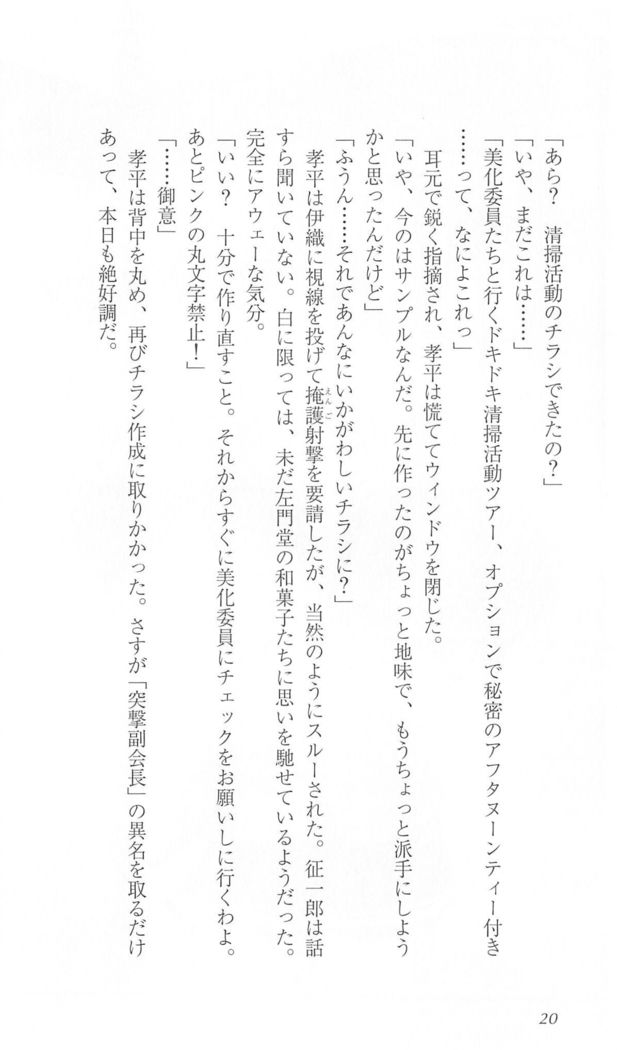 「あら？　清掃活動のチラシできたの？」
「いや、まだこれは……」
「美化委員たちと行くドキドキ清掃活動ツアー、オプションで秘密のアフタヌーンティー付き
……って、なによこれっ」
耳元で鋭く指摘され、孝平は慌ててウィンドウを閉じた。
「いや、今のはサンプルなんだ。先に作ったのがちょっと地味で、もうちょっと派手にしよう
かと思ったんだけど」
「ふうん……それであんなにいかがわしいチラシに？」
孝平は伊織に視線を投げて掩護射撃を要請したが、当然のようにスルーされた。征一郎は話
えんご
すら聞いていない。白に限っては、未だ左門堂の和菓子たちに思いを馳せているようだった。
完全にアウェーな気分。
「いい？　十分で作り直すこと。それからすぐに美化委員にチェックをお願いしに行くわよ。
あとピンクの丸文字禁止！」
「……御意」
孝平は背中を丸め、再びチラシ作成に取りかかった。さすが「突撃副会長」の異名を取るだけ
あって、本日も絶好調だ。
20